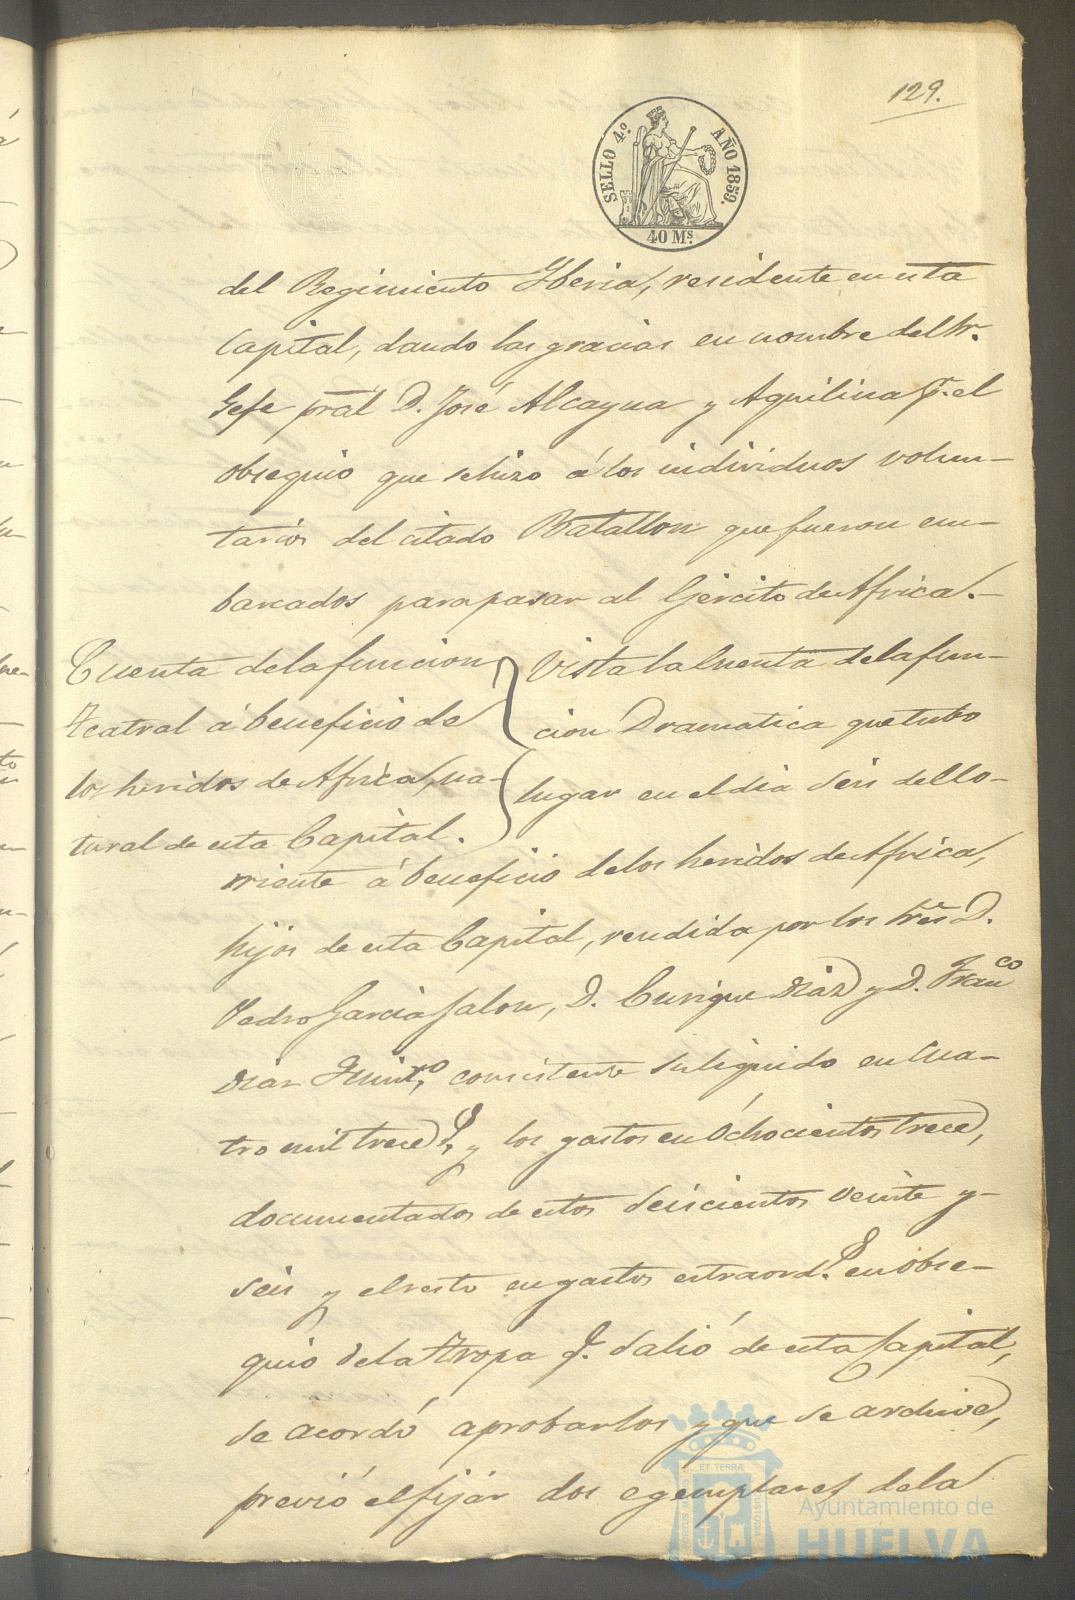 129.
SELLO 4º. AÑO 1859.
40 Mˢ.
del Regimiento Yberia, residente en esta
Capital, dando las gracias en nombre del Sr.
Gefe pral D. José Alcayna y Aquilina pr. el
obsequio que se hizo á los individuos volun-
tarios del citado Batallon que fueron em-
barcados para pasar al Ejército de Africa.
Cuenta de la funcion
teatral á beneficio de
los heridos de Africa, na-
tural de esta Capital.
Vista la Cuenta de la fun-
cion Dramatica que tubo
lugar en el dia seis del co-
rriente á beneficio de los heridos de Africa,
hijos de esta Capital, rendida por los Sres D.
Pedro Garcia Jalon, D. Enrique Diaz y D. Franco
Diaz consistente su liquido en Cua-
tro mil trece y los gastos en Ochocientos trece,
documentados de estos Seiscientos veinte y
seis y el resto en gastos estraords. en obse-
quio de la Tropa q. salió de esta Capital,
se acordó aprobarlos y que se archive,
previó el fijar dos egemplares de la
ET TERRÆ
Ayuntamiento de
HUELVA